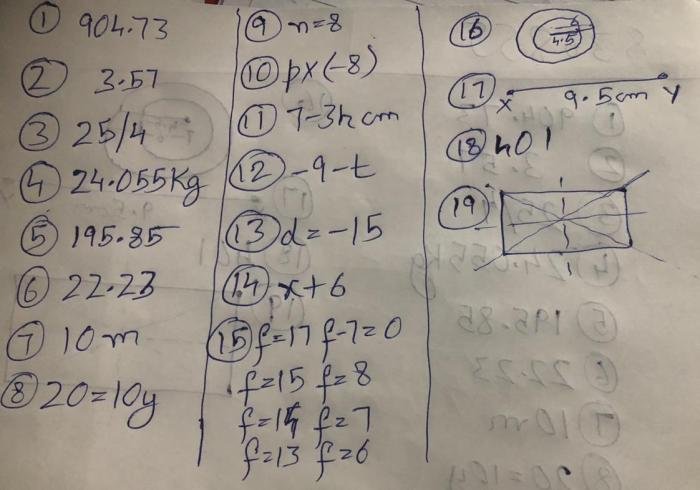 ① 904.73
② 3.57
③ 25/4
④ 24.055Kg
⑤ 195.85
⑥ 22.23
⑦ 10m
⑧ 20=10y
⑨ n=8
⑩ px(-8)
⑪ 7-3h cm
⑫ -9-t
⑬ d=-15
⑭ x+6
⑮ f=17 f-7=0
f=15 f=8
f=14 f=7
f=13 f=6
⑯
4.5
⑰ X 9.5cm Y
⑱ hOl
⑲